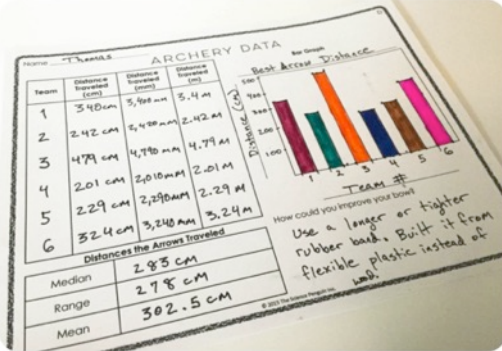 Name Thomas
ARCHERY DATA
Team
Distance Traveled (cm)
Distance Traveled (mm)
Distance Traveled (m)
1 340cm 3,400 mm 3.4 m
2 242 cm 2.42 m
3 479 cm 4,790 mm 4.79 m
4 201 cm 2,010mm 2.01 m
5 229 cm 2,290mm 2.29 m
6 324 cm 3,240 mm 3.24m
Distances the Arrows Traveled
Median 283 cm
Range 278 cm
Mean 302.5 cm
Bar Graph
Best Arrow Distance
Distance (cm)
500
400
300
200
100
1 2 3 4 5 6
Team #
How could you improve your bow?
Use a longer or tighter
rubber band. Built it from
flexible plastic instead of
© 2015 The Science Penguin Inc.